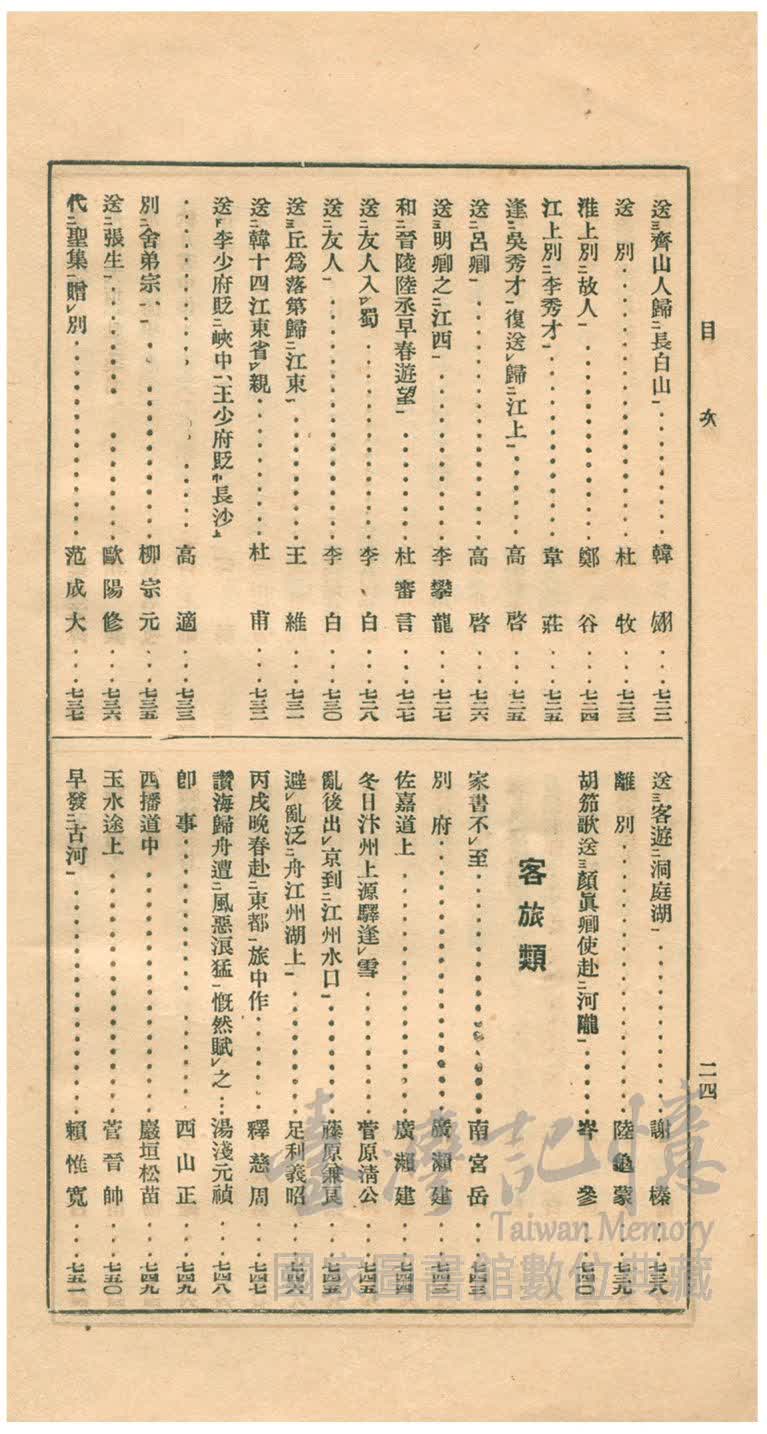 目次
二四
送三齊山人歸二長白山一‥‥‥‥韓翃‥‥七二二
送別‥‥‥‥杜牧‥‥七二三
淮上別二故人一‥‥‥‥鄭谷‥‥七二四
江上別二李秀才一‥‥‥‥韋莊‥‥七二五
逢二吳秀才一復送レ歸二江上一‥‥‥‥高啓‥‥七二五
送二呂卿一‥‥‥‥高啓‥‥七二六
送三明卿之二江西一‥‥‥‥李攀龍‥‥七二七
和二晉陵陸丞早春遊望一‥‥‥‥杜審言‥‥七二七
送二友人入一レ蜀‥‥‥‥李白‥‥七二八
送二友人一‥‥‥‥李白‥‥七三〇
送三丘爲落第歸二江東一‥‥‥‥王維‥‥七三一
送二韓十四江東省一レ親‥‥‥‥杜甫‥‥七三二
送下李少府貶二峽中一、王少府貶中長沙上
‥‥‥‥高適‥‥七三三
別二舍弟宗一一‥‥‥‥柳宗元‥‥七三五
送二張生一‥‥‥‥歐陽修‥‥七三六
代二聖集一贈レ別‥‥‥‥范成大‥‥七三七
送三客遊二洞庭湖一‥‥‥‥謝榛‥‥七三八
離別‥‥‥‥陸龜蒙‥‥七三九
胡笳歌送三顏眞卿使赴二河隴一‥‥‥‥岑參‥‥七四〇
客旅類
家書不レ至‥‥‥‥南宮岳‥‥七四三
別府‥‥‥‥廣瀨建‥‥七四三
佐嘉道上‥‥‥‥廣瀨建‥‥七四四
冬日汴州上源驛逢レ雪‥‥‥‥菅原淸公‥‥七四五
亂後出レ京到二江州水口一‥‥‥‥藤原兼良‥‥七四五
避レ亂泛二舟江州湖上一‥‥‥‥足利義昭‥‥七四六
丙戌晩春赴二東都一旅中作‥‥‥‥釋慈周‥‥七四七
讚海歸舟遭二風惡浪猛一慨然賦レ之‥‥湯淺元禎‥‥七四八
卽事‥‥‥‥西山正‥‥七四九
西播道中‥‥‥‥巖垣松苗‥‥七四九
玉水途上‥‥‥‥菅晉帥‥‥七五〇
早發二古河一‥‥‥‥賴惟寬‥‥七五一
臺灣記憶
Taiwan Memory
國家圖書館數位典藏